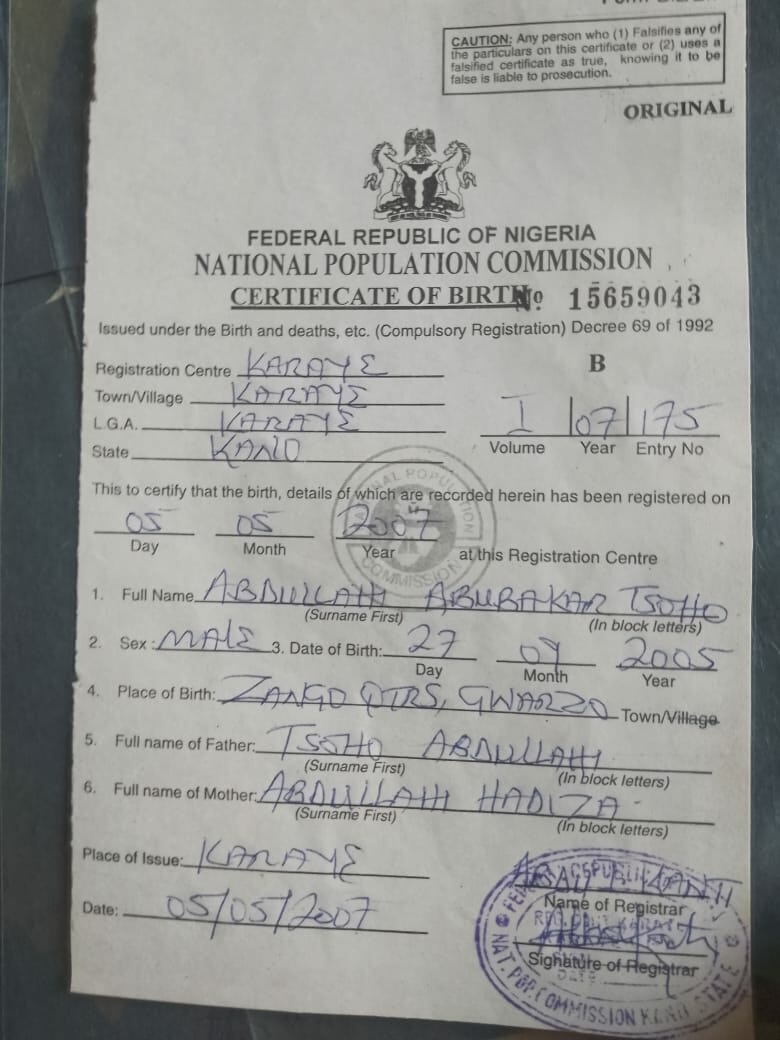 CAUTION: Any person who (1) Falsifies any of
the particulars on this certificate or (2) uses a
falsified certificate as true, knowing it to be
false is liable to prosecution.
ORIGINAL
FEDERAL REPUBLIC OF NIGERIA
NATIONAL POPULATION COMMISSION
CERTIFICATE OF BIRTH No 15659043
Issued under the Birth and deaths, etc. (Compulsory Registration) Decree 69 of 1992
Registration Centre KARAYE
B
Town/Village KARAYE
L.G.A. KARAYE
I 07 175
State KANO
Volume Year Entry No
NATIONAL POPULATION COMMISSION
This to certify that the birth, details of which are recorded herein has been registered on
05 05 2007
Day Month Year at this Registration Centre
1. Full Name ABDULLAHI ABUBAKAR TSOHO
(Surname First) (In block letters)
2. Sex: MALE 3. Date of Birth: 27 09 2005
Day Month Year
4. Place of Birth: ZANGO QTRS, GWARZO Town/Village
5. Full name of Father: TSOHO ABDULLAHI
(Surname First) (In block letters)
6. Full name of Mother: ABDULLAHI HADIZA
(Surname First) (In block letters)
Place of Issue: KARAYE
Date: 05/05/2007
Name of Registrar
Signature of Registrar
NAT. POP. COMMISSION KANO STATE